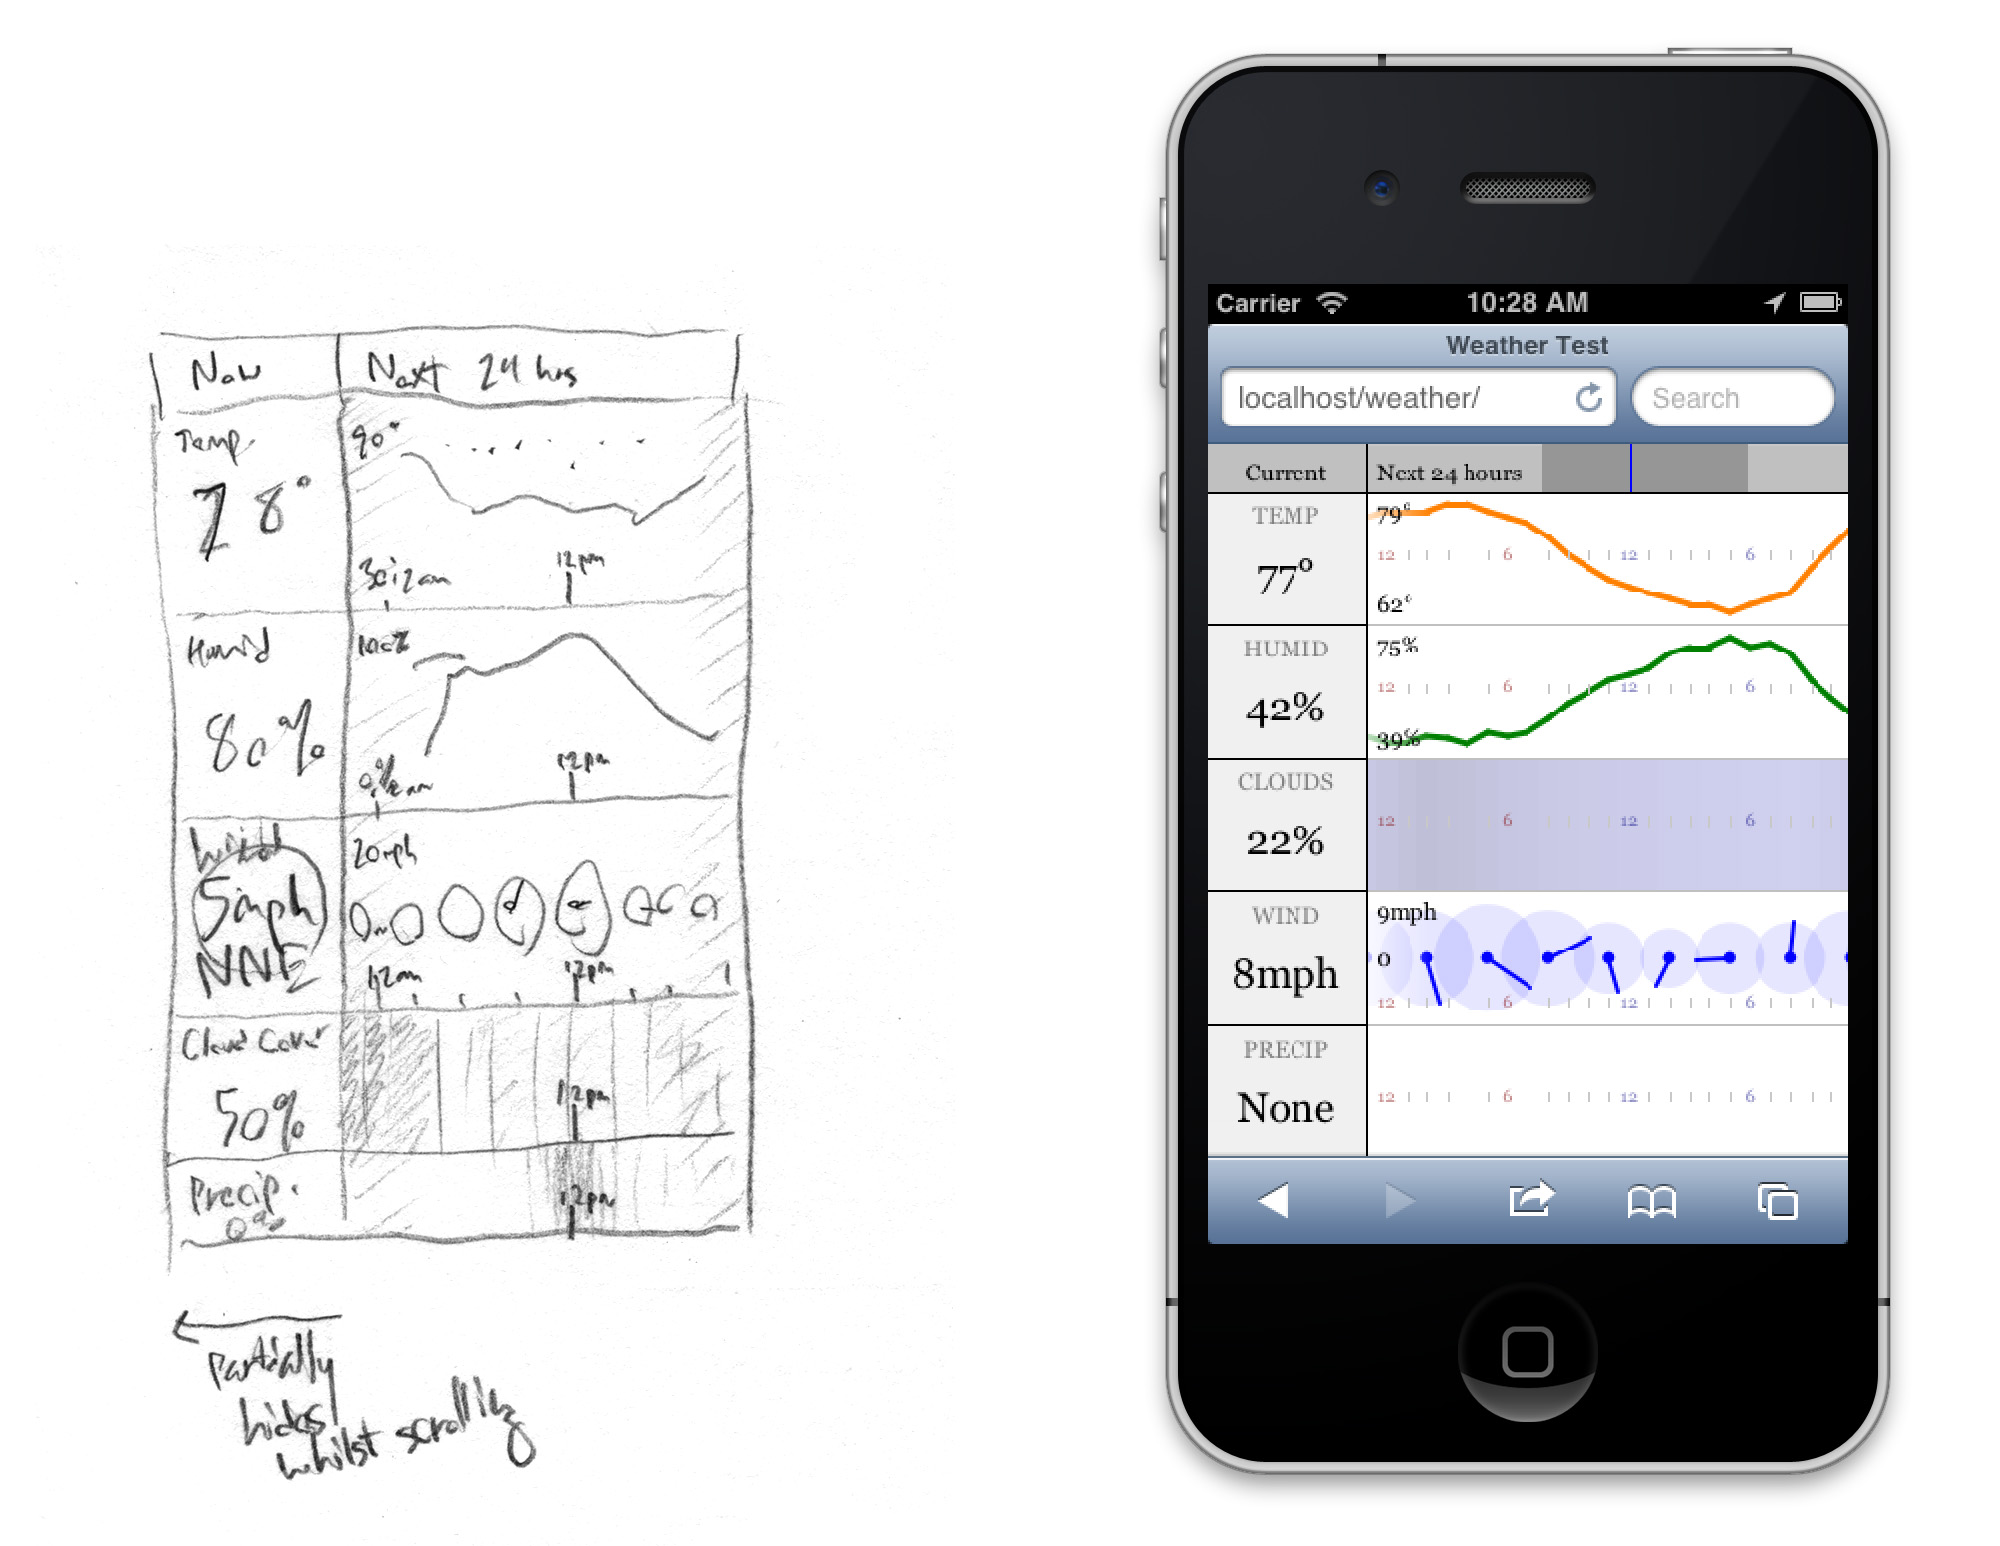 Now
Next 24 hrs
Temp.
90°
78°
12am
12pm
Humid
100%
80%
0%
12am
12pm
Wind
20mph
5mph
NNE
12am
12pm
Cloud Cover
50%
12pm
Precip.
0%
12pm
Partially
hides
whilst scrolling
Carrier
10:28 AM
Weather Test
localhost/weather/
Search
Current
Next 24 hours
TEMP
79°
77°
12 6 12 6
62°
HUMID
75%
42%
12 6 12 6
39%
CLOUDS
22%
12 6 12 6
WIND
9mph
8mph
0
12 6 12 6
PRECIP
None
12 6 12 6